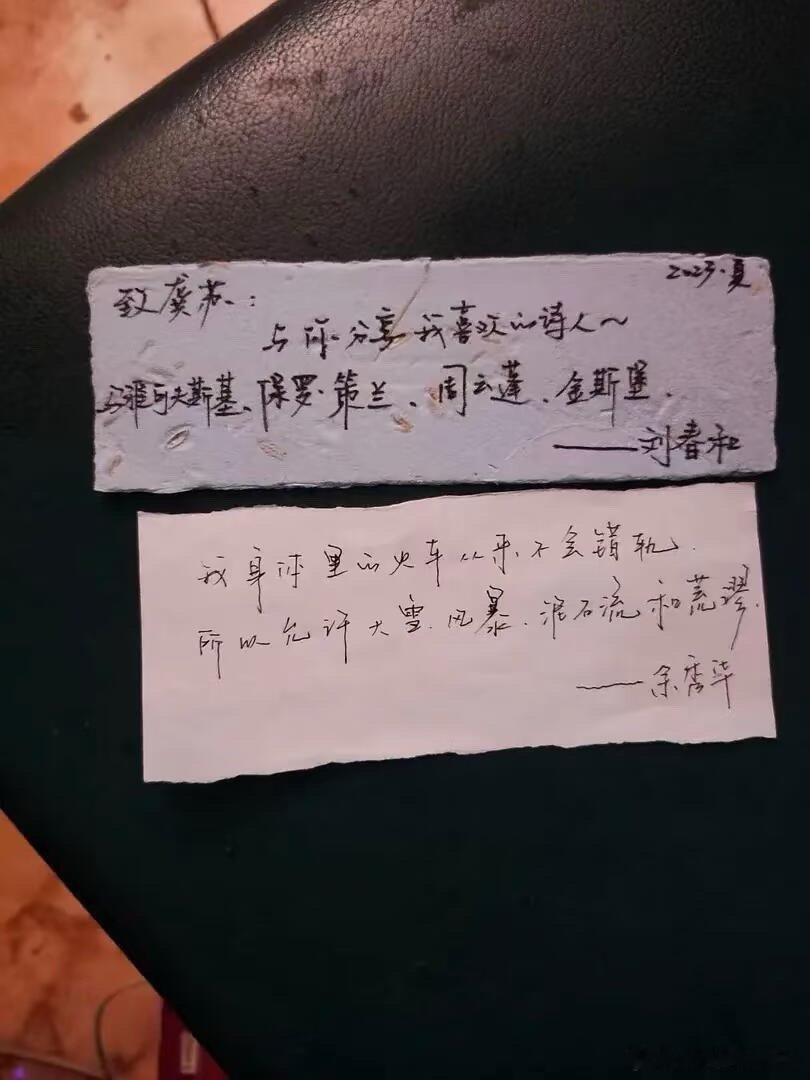 2023·夏
致虞苏：
与你分享我喜欢的诗人～
马雅可夫斯基、保罗·策兰、周云蓬、金斯堡.
——刘春和
我身体里的火车从来不会错轨.
所以允许大雪.风暴.泥石流和荒谬.
——余秀华